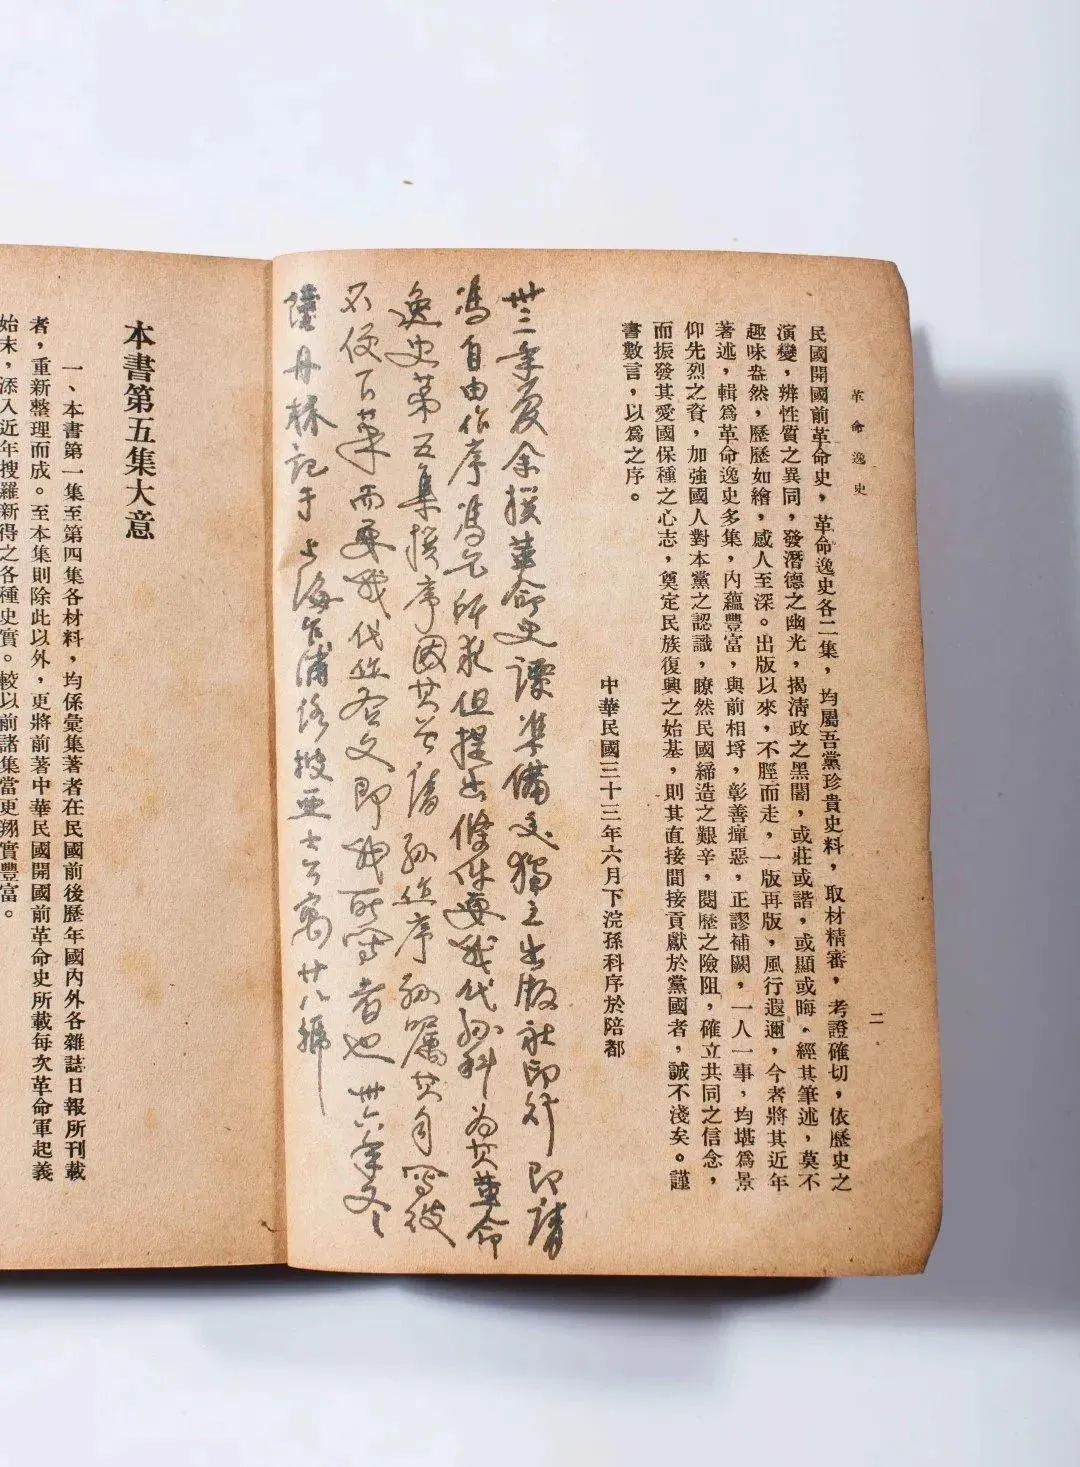 革命逸史
二
民國開國前革命史，革命逸史各二集，均屬吾黨珍貴史料，取材精審，考證確切，依歷史之
演變，辨性質之異同，發潛德之幽光，揭清政之黑闇，或莊或諧，或顯或晦，經其筆述，莫不
趣味盎然，歷歷如繪，感人至深。出版以來，不脛而走，一版再版，風行遐邇，今者將其近年
著述，輯爲革命逸史多集，內蘊豐富，與前相埒，彰善癉惡，正謬補闕，一人一事，均堪爲景
仰先烈之資，加強國人對本黨之認識，瞭然民國締造之艱辛，閱歷之險阻，確立共同之信念，
而振發其愛國保種之心志，奠定民族復興之始基，則其直接間接貢獻於黨國者，誠不淺矣。謹
書數言，以爲之序。
中華民國三十三年六月下浣孫科序於陪都
卅三年夏余撰革命史譚準備交獨立出版社印行即請
馮自由作序馮允所求但提出條件要我代孫科為其革命
逸史第五集撰序因其曾請孫作序孫囑其自寫彼
不便下筆而要我代作此文即我所寫者也卅六年冬
陸丹林記于上海乍浦路披亞士公寓廿八號
本書第五集大意
一、本書第一集至第四集各材料，均係彙集著者在民國前後歷年國內外各雜誌日報所刊載
者，重新整理而成。至本集則除此以外，更將前著中華民國開國前革命史所載每次革命軍起義
始末，添入近年搜羅新得之各種史實。較以前諸集當更翔實豐富。